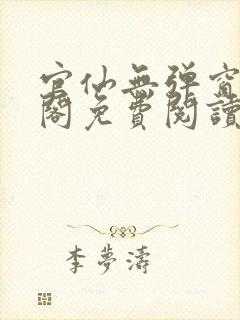 官仙無彈窗
閣免費閱讀
李夢濤